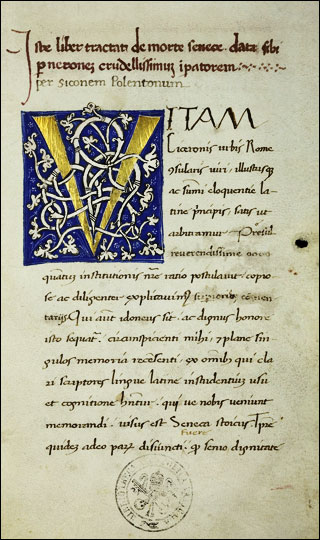 Iste liber tractat de morte senece data sibi
p neronez crudellissimuz ipatorem
per Siconem Polentonum
VITAM
Ciceronis urbis Rome
ɔsularis viri, illustrisq
ac sumi eloquentie la-
tine pncipis, satis ut
arbitramur
reverendissime
quatuz institutionis nr̄e ratio postulavit copio
se ac diligenter explicavimꝰ superiorib̕ cōmen
tarijs. Qui aūt idoneus sit, ac dignus honore
isto sequat̄. circumspicienti mihi, ɀ plane sin-
gulos memoria recēsenti, ex omib̕ qui cla
ri scriptores lingue latine in studentiuz usu
et cognitione hn̄tur, qui ve nobis veniunt
memorandi, visus est Seneca stoicus. Tpr̄e
fuere
quidez adeo paru disiuncti, q senio dignitate